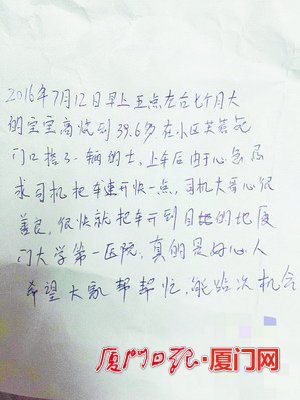 2016年7月12日早上五点左右七个月大
的宝宝高烧到39.6多在小区芙蓉苑
门口搭了一辆的士,上车后由于心急恳
求司机把车速开快一点,司机大哥心很
善良,很快就把车开到目的地厦
门大学第一医院,真的是好心人
希望大家帮帮忙,能给次机会
厦门日报·厦门网